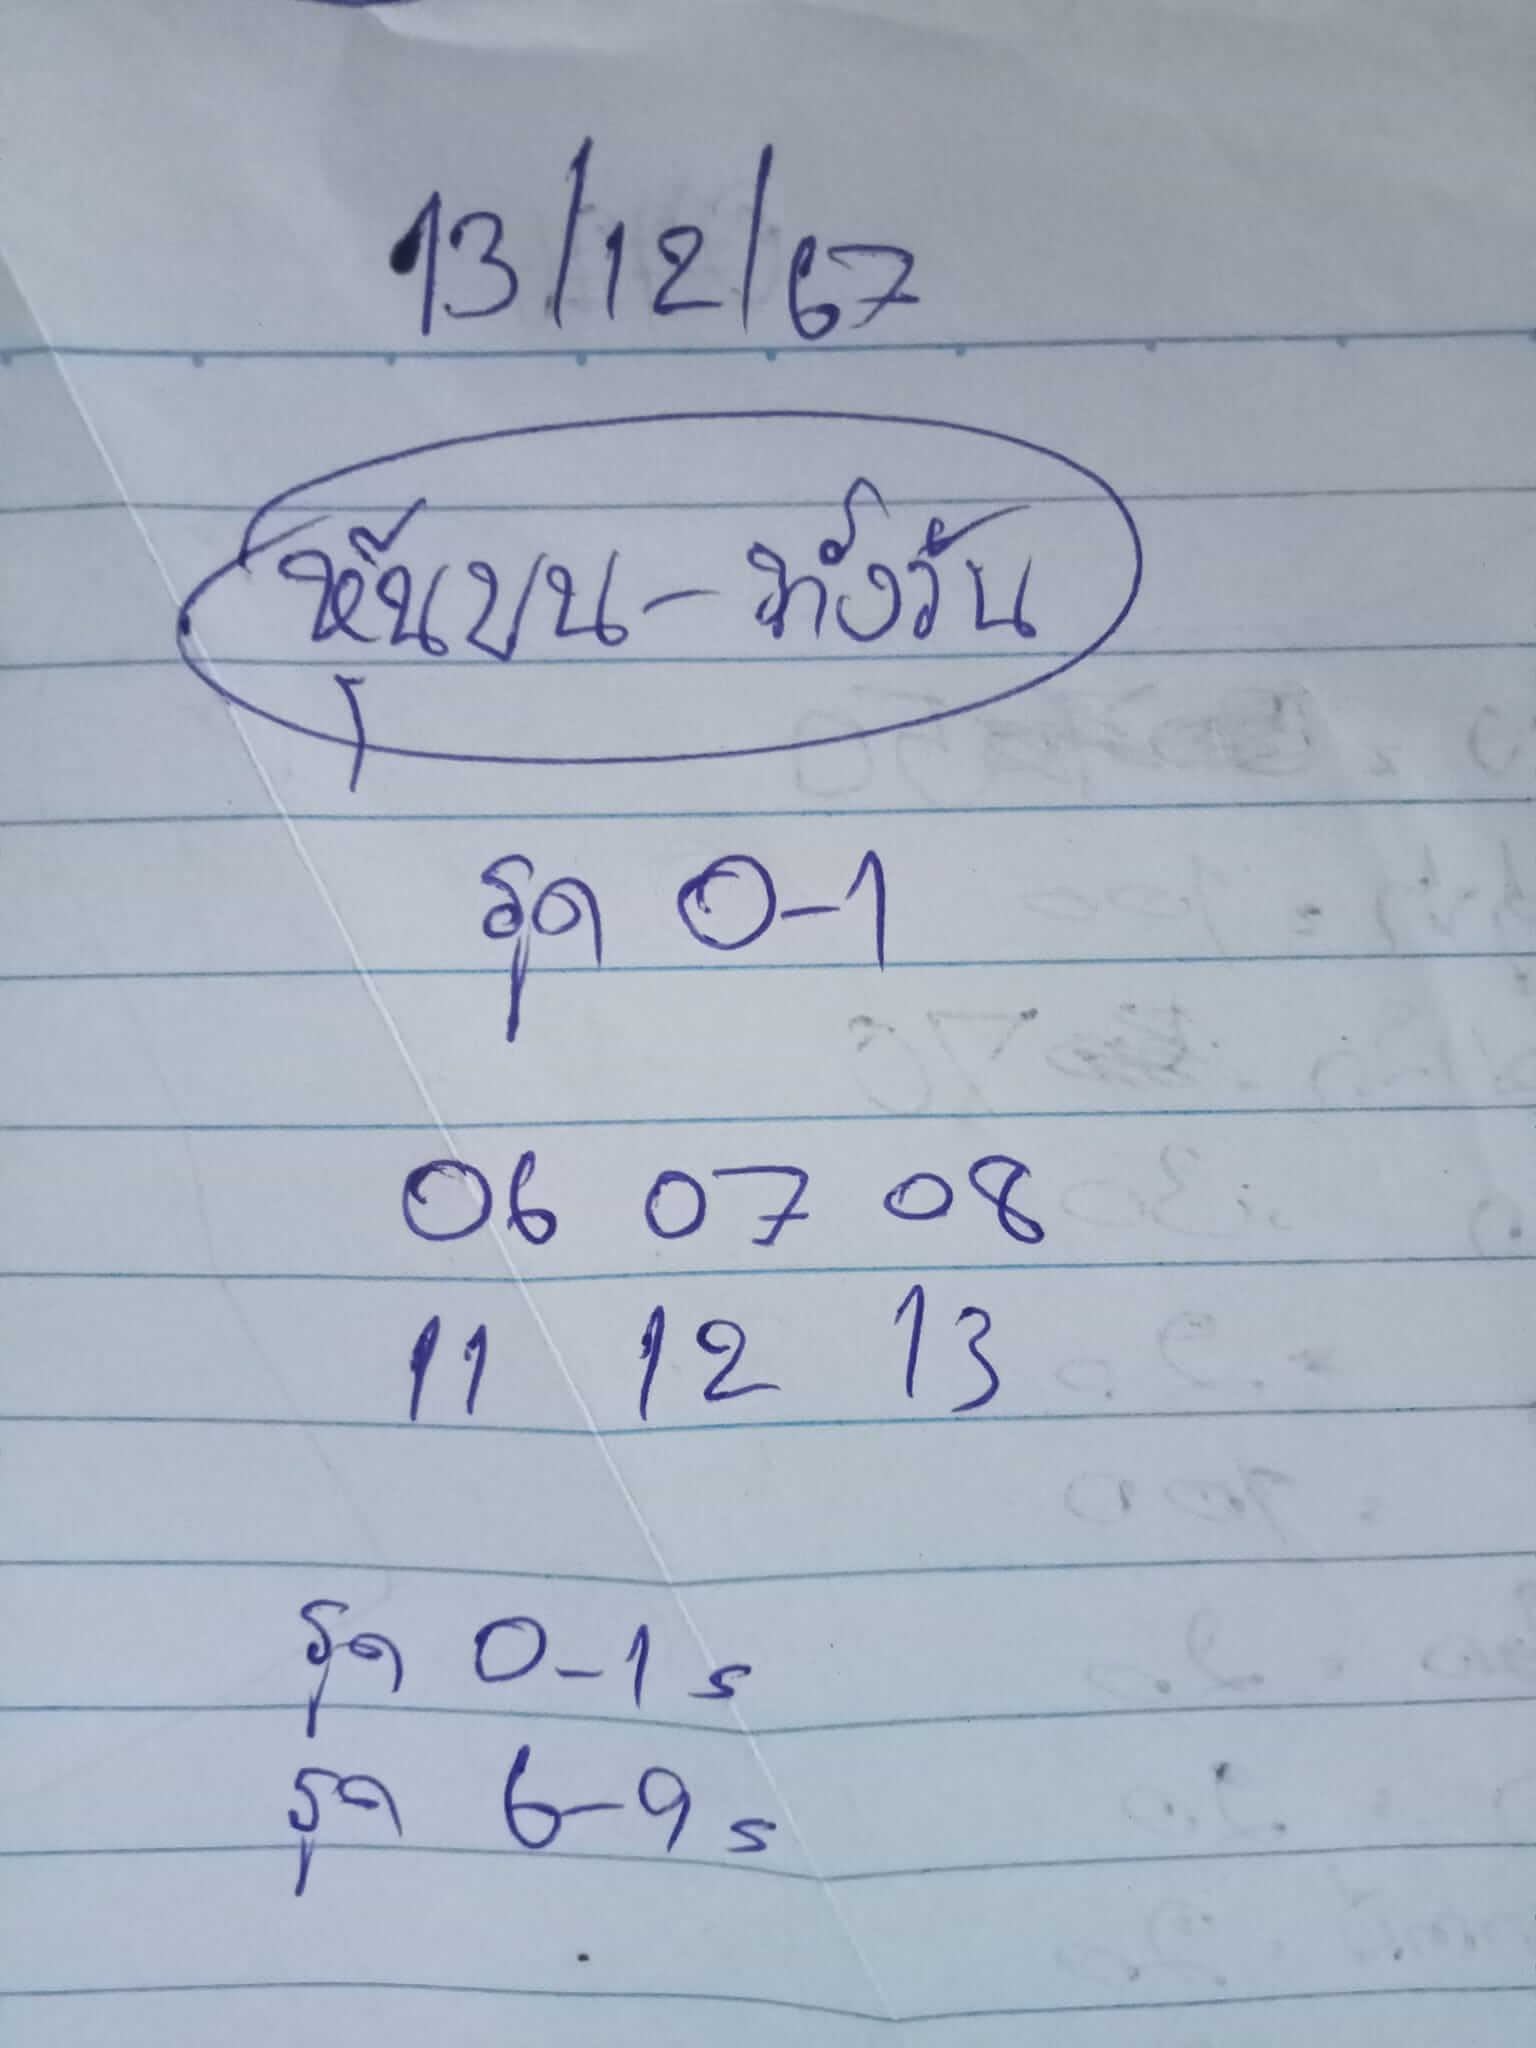 13/12/67
หุ้นบน - ทั้งวัน
รูด 0-1
06 07 08
11 12 13
รูด 0-1 s
รูด 6-9 s